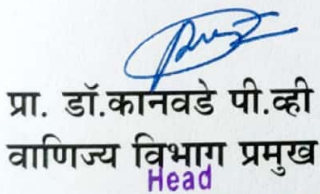 प्रा. डॉ.कानवडे पी.व्ही
वाणिज्य विभाग प्रमुख
Head